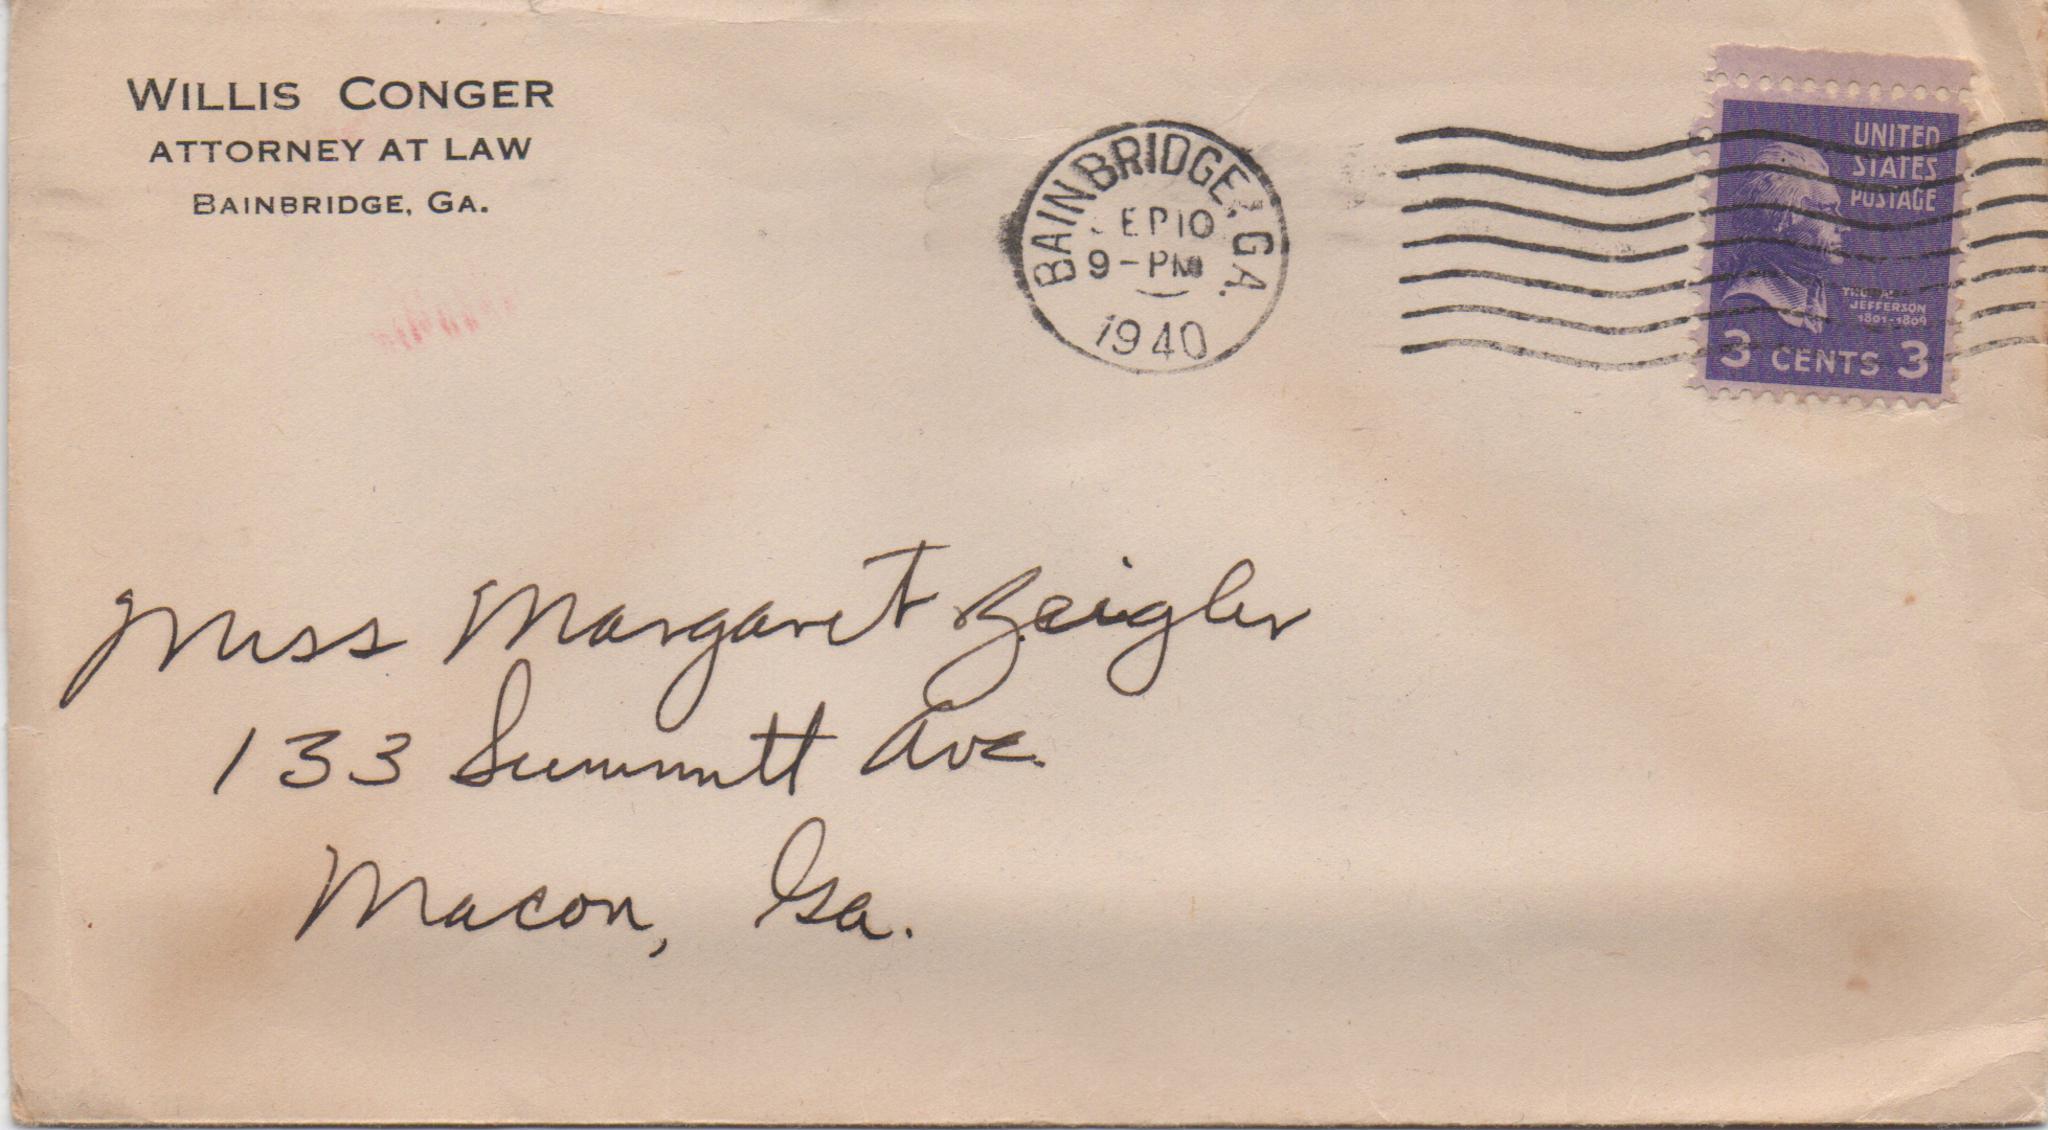 WILLIS CONGER
ATTORNEY AT LAW
BAINBRIDGE, GA.
BAINBRIDGE, GA.
SEP 10
9-PM
1940
UNITED
STATES
POSTAGE
THOMAS
JEFFERSON
1801-1809
3 CENTS 3
Miss Margaret Zeigler
133 Summitt Ave.
Macon, Ga.